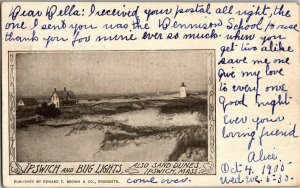 Dear Della: I received your postal all right, the
one I sent you was the Dennison School, prise
thank you for mine ever so much. when you
get tio alike
save me one
Give my love
to every one
Good night.
ever your
loving friend
Alice.
Oct 4. 1905
Wed eve 5-30-
IPSWICH AND BUG LIGHTS,
ALSO SAND DUNES,
IPSWICH, MASS.
PUBLISHED BY EDWARD F. BROWN & CO., DRUGGISTS.
come over.